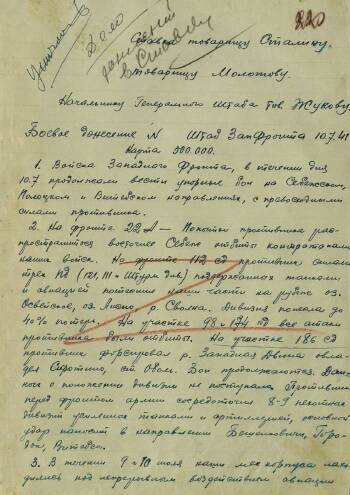 220
Ставка товарищу Сталину.
товарищу Молотову.
Начальнику Генерального Штаба тов Жукову
Боевое донесение N Штаб ЗапФронта 10.7.41
Карта 500.000.
1. Войска Западного Фронта, в течении дня
10.7 продолжали вести упорные бои на Себежском,
Полоцком и Витебском направлениях, с превосходными
силами противника.
2. На фронте 22А – Попытки противника рас-
пространиться восточнее Себеж отбиты контратаками
наших войск. На фронте 112 сд противник силами
трех пд (121, 111 и Штурм див.) поддержанная танками
и авиацией потеснил наши части на рубеже оз.
Освейское, оз. Лисно, р. Свольна. Дивизия понесла до
40% потерь. На участке 98 и 174 сд все атаки
противника были отбиты. На участке 186 сд
противник форсировал р. Западная Двина овла-
дел Сиротино, ст. Оболь. Бои продолжаются. Дан-
ных о положении дивизии не поступало. Противник
перед фронтом армии сосредоточил 8-9 пехотных
дивизий усиленных танками и артиллерией, основной
удар наносит в направлении Бешенковичи, Горо-
док, Витебск.
3. В течении 9 и 10 июля наши мехкорпуса нахо-
дились под непрерывным воздействием авиации